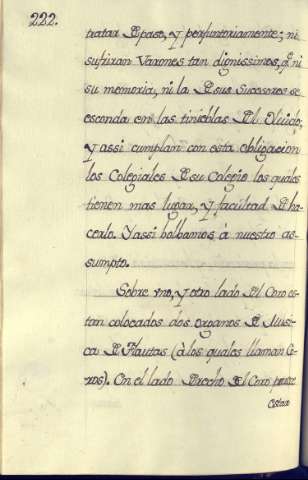 222.
tratar de paso, y perfuntoriamente; ni
sufriran Varones tan dignissimos, q.e ni
su memoria, ni la de sus Sucesores se
esconda en las tinieblas del Olvido;
y assi cumplan con esta obligacion
los Colegiales de su Colegio los quales
tienen mas lugar, y facultad de ha-
cerlo. Y assi bolbamos à nuestro as-
sumpto.
Sobre vno, y otro lado del Coro es-
tan colocados dos organos de Musi-
ca de Flautas (à los quales llaman
). En el lado derecho del Coro
Estar